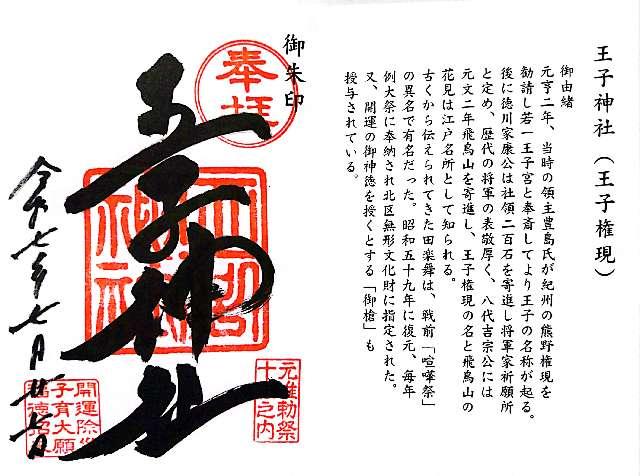 王子神社（王子権現）
御由緒
元亨二年、当時の領主豊島氏が紀州の熊野権現を
勧請し若一王子宮と奉斎してより王子の名称が起る。
後に徳川家康公は社領二百石を寄進し将軍家祈願所
と定め、歴代の将軍の表敬厚く、八代吉宗公には
元文二年飛鳥山を寄進し、王子権現の名と飛鳥山の
花見は江戸名所として知られる。
古くから伝えられてきた田楽舞は、戦前「喧嘩祭」
の異名で有名だった。昭和五十九年に復元、毎年
例大祭に奉納され北区無形文化財に指定された。
又、開運の御神徳を授くとする「御槍」も
授与されている。
御朱印
奉拝
王子神社
元准勅祭
十社之内
令和七年七月廿七日
開運除災
子育大願